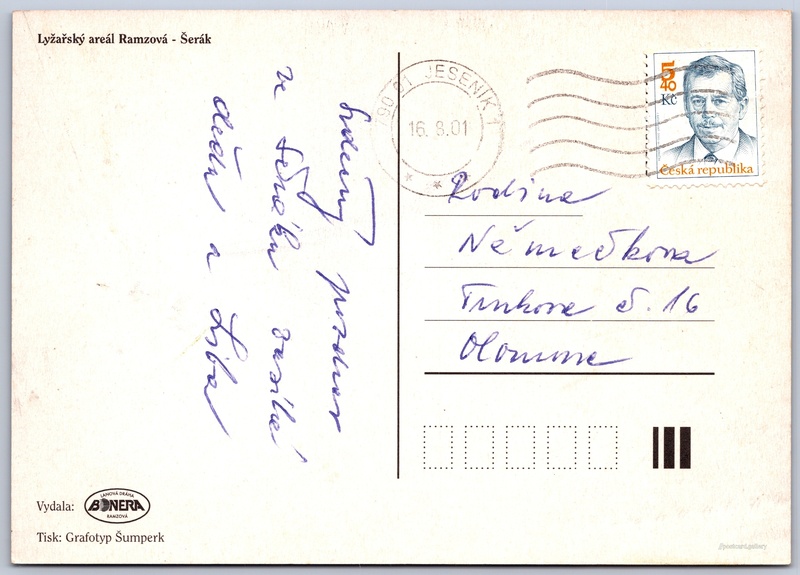 Lyžařský areál Ramzová - Šerák
Srdečný pozdrav
ze Šeráku zasílá
děda a Liba
790 01 JESENÍK 1
16. 8.01
5
40
Kč
Česká republika
Rodina
Němečkova
Trnkova č. 16
Olomouc
Vydala:
LANOVÁ DRÁHA
BONERA
RAMZOVÁ
Tisk: Grafotyp Šumperk